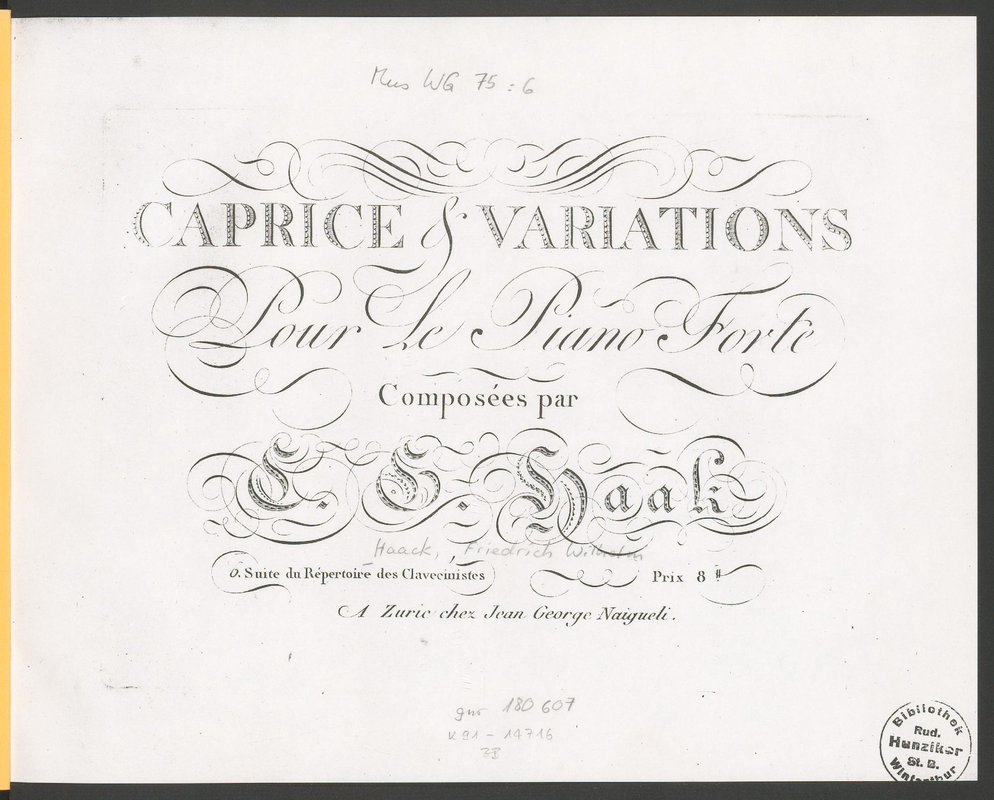 Mus WG 75 : 6
CAPRICE & VARIATIONS
Pour Le Piano Forte
Composées par
C. G. Haak
Haack, Friedrich Wilhelm
6. Suite du Répertoire des Clavecinistes
Prix 8
A Zuric chez Jean George Naigueli.
180 607
K 91 - 14716
Bibliothek
Rud.
Hunziker
St. B.
Winterthur